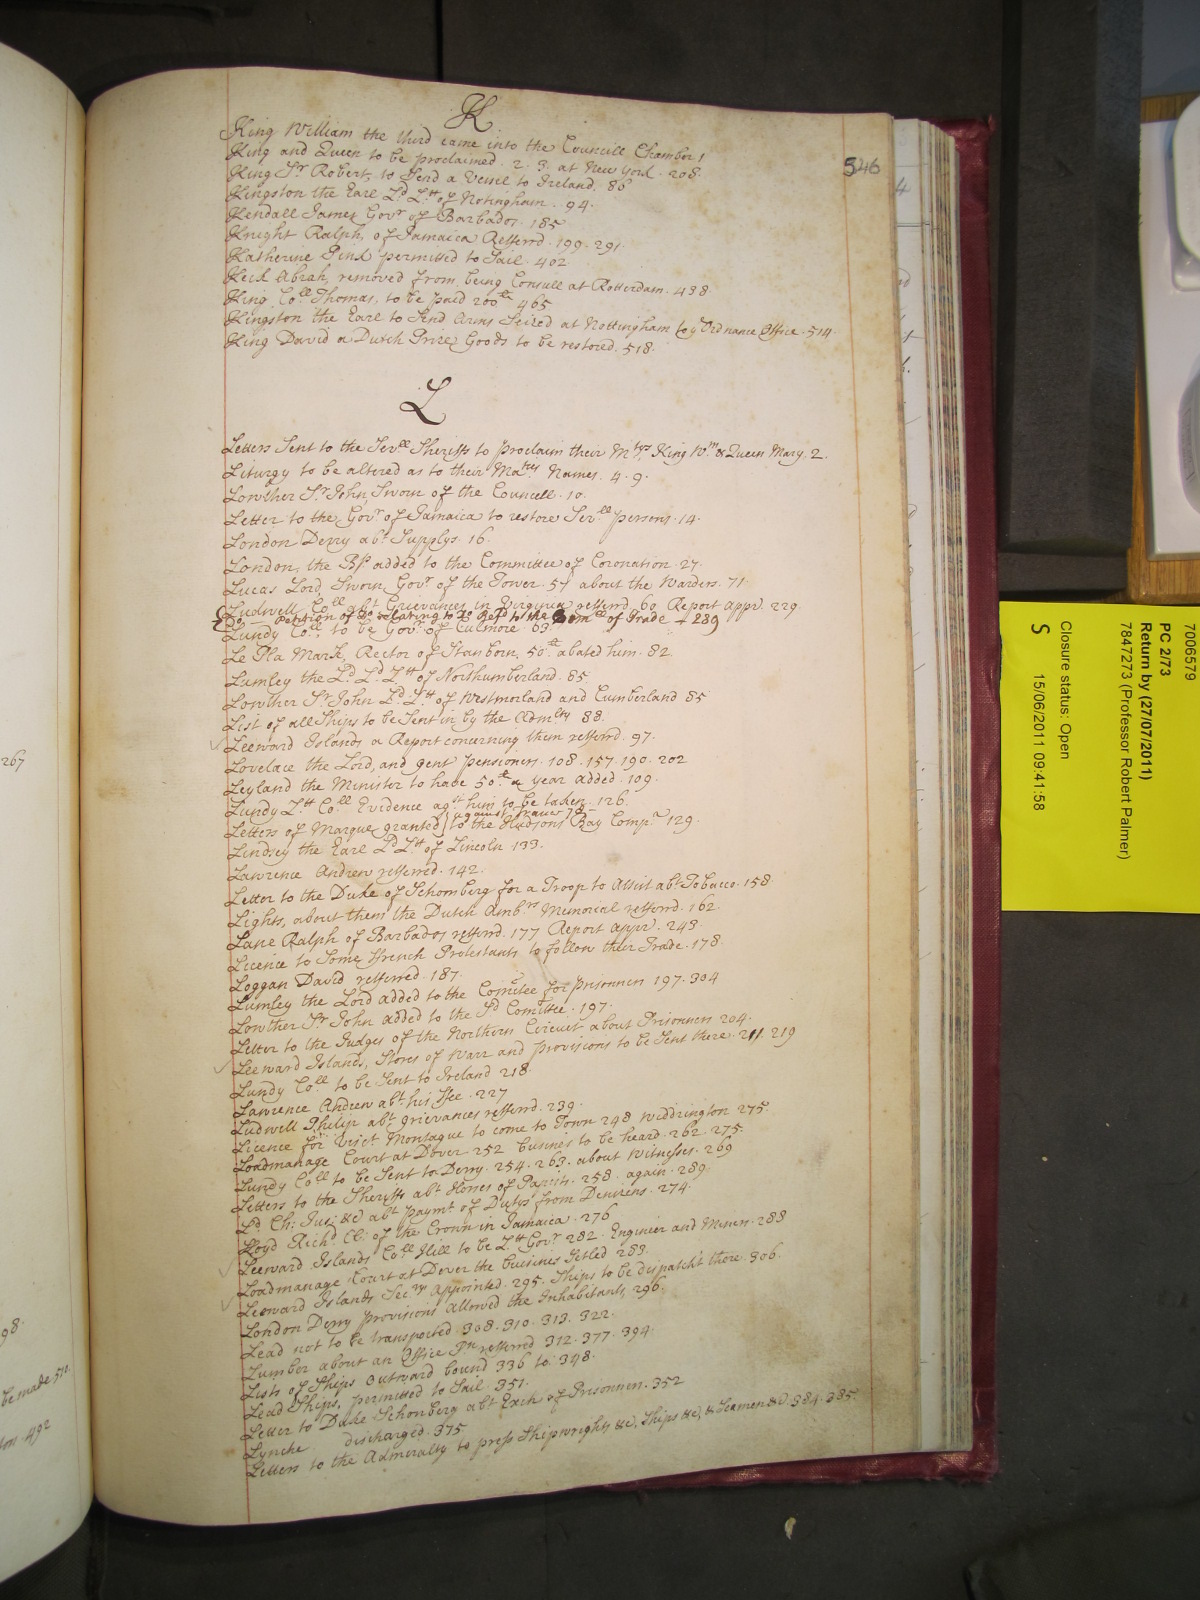 K
546
King William the third came into the Councill Chamber 1
King and Queen to be proclaimed. 2. 3. at New York. 208.
King Sr. Robert, to Send a Vessel to Ireland. 86
Kingston the Earl Ld Ltt of Notingham. 94.
Kendall James Govr of Barbados. 185
Knight Ralph, of Jamaica Refferrd. 199. 291.
Katherine Pink permitted to Sail. 402
Keck Abrah, removed from being Consull at Rotterdam. 438.
King Coll Thomas, to be paid 200 465
Kingston the Earl to Send Arms Seized at Nottingham to ye Ordnance Office. 514.
King David a Dutch Prize Goods to be restored. 518.
L
Letters Sent to the Severll Sheriffs to Proclaim their Mtys. King Wm & Queen Mary. 2.
Liturgy to be altered as to their Matys Names. 4. 9.
Lowther Sr John, Sworn of the Councell. 10.
Letter to the Govr of Jamaica to restore Severll persons. 14.
London Derry abt Supplys. 16.
London, the Bp added to the Committee of Coronation. 27.
Lucas Lord, Sworn Govr of the Tower. 57 about the Warders. 71.
Ludwell Coll abt Grievances in Virginia refferrd. 60. Report appr. 229
Do — Petition of Do relating to Do Refd to the Comll of Trade + 289
Lundy Coll. to be Govr of Culmore. 63
Le Pla Mark, Rector of Stanborn, 50 abated him. 82.
Lumley the Ld. Ld Ltt of Northumberland. 85.
Lowther Sr John Ld. Ltt of Westmorland and Cumberland 85
List of all Ships to be Sent in by the Admlty 88.
Leeward Islands a Report concerning them refferrd. 97.
Lovelace the Lord, and gent Pensioners. 108. 157. 190. 202
Leyland the Minister to have 50 a year added. 109.
Lundy Ltt Coll Evidence agst him to be taken. 126.
against France 78
Letters of Marque granted to the Hudsons Bay Compa 129.
Lindsey the Earl Ld Ltt of Lincoln 133.
Lawrence Andrew refferrd. 142.
Letter to the Duke of Schomberg for a Troop to Assist abt Tobacco. 158
Lights, about them the Dutch Ambrs Memorial refferrd. 162.
Lane Ralph of Barbados refferrd. 177 Report appr. 243.
Licence to Some French Protestants to follow their Trade. 178.
Loggan David refferred. 187.
Lumley the Lord added to the Comittee for Prisonners 197. 304
Lowther Sr John added to the Sd Comittee. 197.
Letter to the Judges of the Northern Circuit about Prisonners 204.
Leeward Islands, Stores of Warr and Provisions to be Sent there. 211. 219
Lundy Coll to be Sent to Ireland 218.
Lawrence Andrew abt his Fee. 227
Ludwell Philip abt grievances refferrd. 239.
Licence for Visct Montague to come to Town 248 Widdrington 275.
Loadmanage Court at Dover 252 business to be heard. 262. 275.
Lundy Coll to be Sent to Derry. 254. 263. about Witnesses. 269
Letters to the Sheriffs abt Horses of Papists. 258. again. 289.
Ld Ch: Jus: &c abt paymt of Dutys from Denizens. 274.
Lloyd Richd Cl: of the Crown in Jamaica. 276
Leeward Islands Coll Hill to be Ltt Govr 282. Engineer and Miners. 283
Loadmanage Court at Dover the business Setled 283.
Leeward Islands Secry appointed. 295. Ships to be dispatch't there. 306.
London Derry Provisions allowed the Inhabitants, 296.
Lead not to be transported 308. 310. 313. 322.
Lumber about an Office Pn refferred 312. 377. 394.
Lists of Ships outward bound 336 to 348.
Lead Ships, permitted to Sail. 351.
Letter to Duke Schonberg abt Exch of Prisonners. 352
Lynche discharged. 375
Letters to the Admiralty to press Shipwrights &c, Ships &c, & Seamen &c. 384. 385
267
98.
be made 511.
492
7006579
PC 2/73
Return by (27/07/2011)
7847273 (Professor Robert Palmer)
Closure status: Open
S 15/06/2011 09:41:58